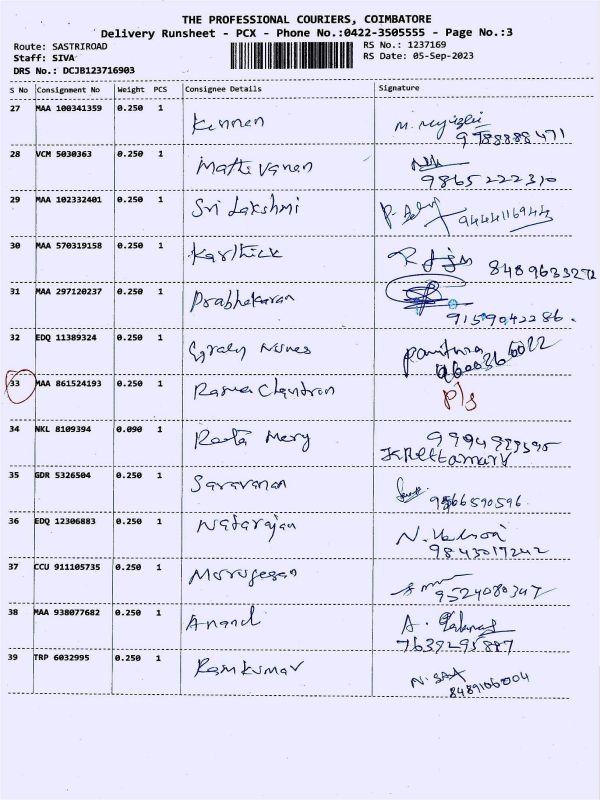 THE PROFESSIONAL COURIERS, COIMBATORE
Delivery Runsheet - PCX - Phone No.:0422-3505555 - Page No.:3
Route: SASTRIROAD RS No.: 1237169
Staff: SIVA RS Date: 05-Sep-2023
DRS No.: DCJB123716903
S No Consignment No Weight PCS Consignee Details Signature
27 MAA 100341359 0.250 1 Kannan
9788888471
28 VCM 5030363 0.250 1 Mathivanan
9865222310
29 MAA 102332401 0.250 1 Sri Lakshmi 9444116944
30 MAA 570319158 0.250 1 Karthick 8489633272
31 MAA 297120237 0.250 1 Prabhakaran
9159042286.
32 EDQ 11389324 0.250 1
33 MAA 861524193 0.250 1 Rama Chandron P/s
34 NKL 8109394 0.090 1 Reeta Mery
35 GDR 5326504 0.250 1 Saravanan
9566590596.
36 EDQ 12306883 0.250 1 Natarajan
9843017242
37 CCU 911105735 0.250 1 Murugesan
9524080347
38 MAA 938077682 0.250 1 Anand A.
7639295887
39 TRP 6032995 0.250 1 Ramkumar
8489106004